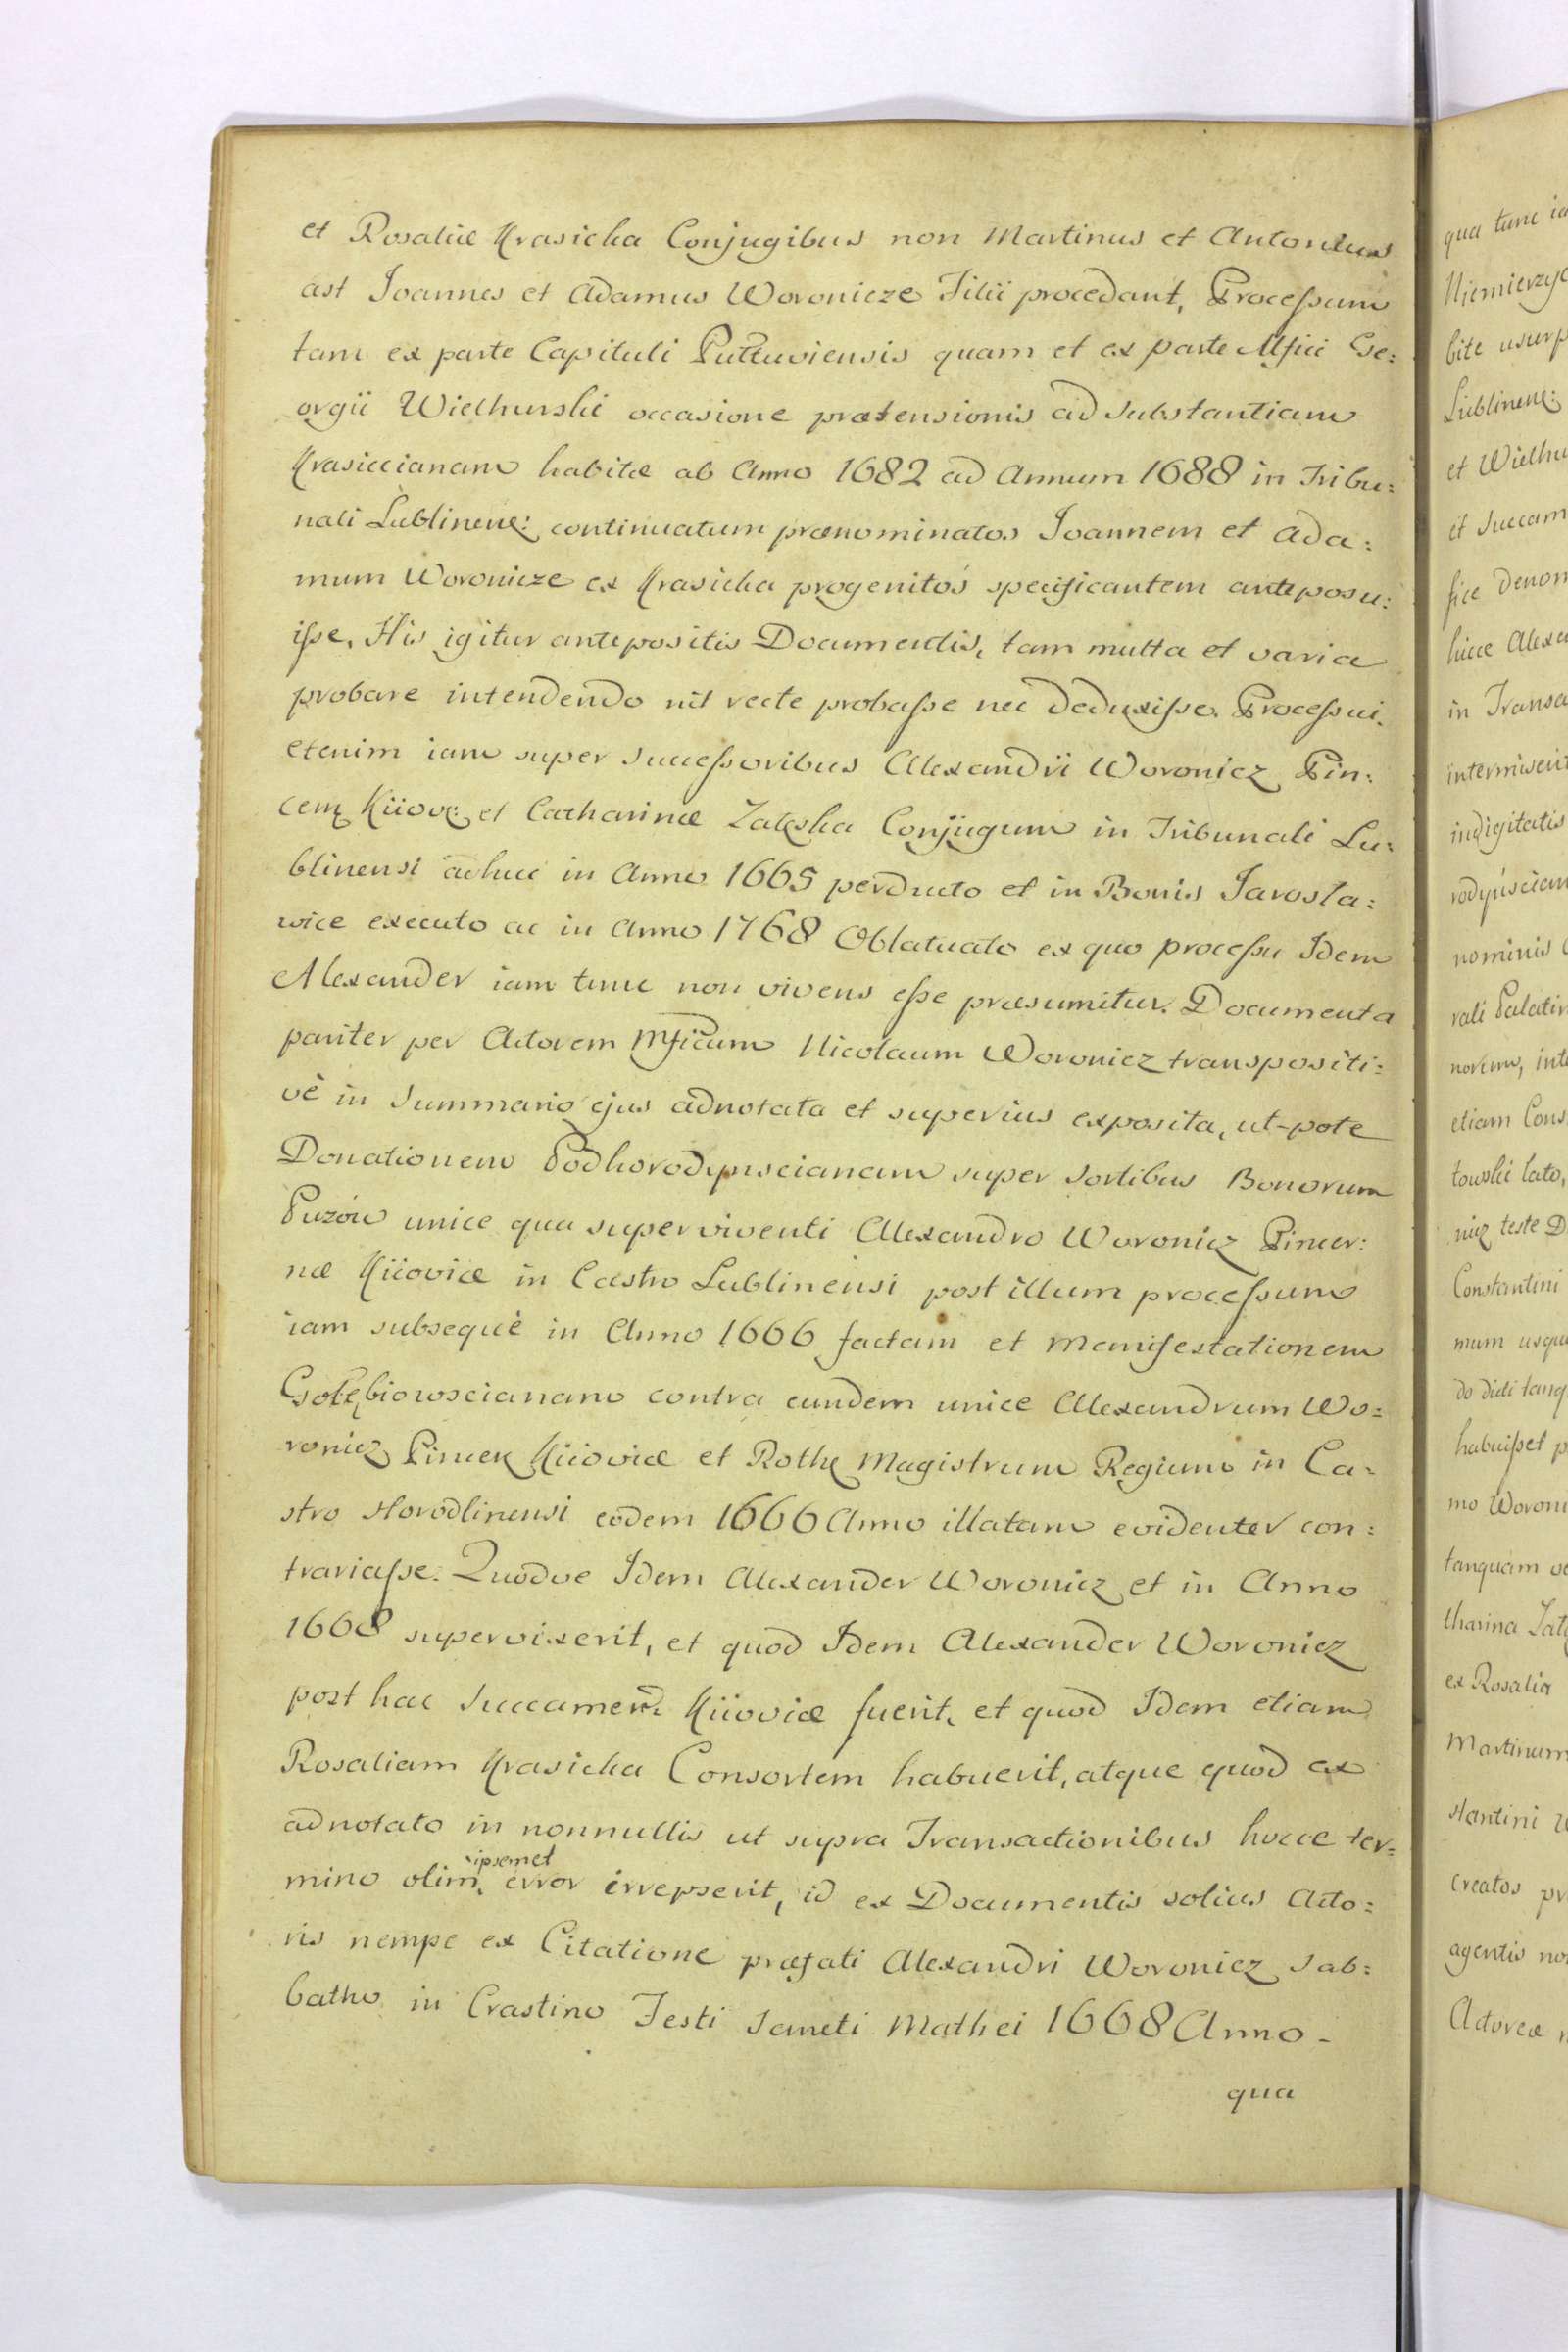 et Rosaliæ Krasicka Conjugibus non Martinus et Antonius
ast Joannes et Adamus Woronicze Filii procedant, Processum
tam ex parte Capituli Pultuviensis quam et ex parte Mfici Ge:
orgii Wielhurski occasione prætensionis ad substantiam
Krasiccianam habitæ ab Anno 1682 ad Annum 1688 in Tribu:
nali Lublinen: continuatum prænominatos Joannem et Ada:
mum Woronicze ex Krasicka progenitos specificantem anteposu:
isse. His igitur antepositis Documentis, tam multa et varia
probare intendendo nil recte probasse nec deduxisse. Processui
etenim iam super successoribus Alexandri Woronicz Pin:
cern Kiiov: et Catharinæ Zaleska Conjugum in Tribunali Lu:
blinensi adhuc in Anno 1665 perducto et in Bonis Jarosla:
wice executo ac in Anno 1768 Oblatuato ex quo processu Idem
Alexander iam tunc non vivens esse præsumitur. Documenta
pariter per Actorem Mficum Nicolaum Woronicz transpositi:
vè in Summario ejus adnotata et superius exposita, ut-pote
Donationem Podhorodynscianam super sortibus Bonorum
Puzów unice qua superviventi Alexandro Woronicz Pincer:
næ Kiioviæ in Castro Lublinensi post illum processum
iam subsequè in Anno 1666 factam et Manifestationem
Gołębiowscianam contra eundem unice Alexandrum Wo:
ronicz Pincer Kiioviæ et Rothæ Magistrum Regium in Ca:
stro Horodlinensi eodem 1666 Anno illatam evidenter con:
trariasse. Quodve Idem Alexander Woronicz et in Anno
1668 supervixerit, et quod Idem Alexander Woronicz
post hac Succamerd: Kiioviæ fuerit, et quod Idem etiam
Rosaliam Krasicka Consortem habuerit, atque quod ex
adnotato in nonnullis ut supra Transactionibus hocce ter:
ipsemet
mino olim, error irrepserit, id ex Documentis solius Acto:
ris nempe ex Citatione præfati Alexandri Woronicz Sab:
batho in Crastino Festi Sancti Mathei 1668 Anno -
qua
qua tunc
Niemierzyc
bite usurp
Lublinen:
et Wielhu
et Succam
fice denom
hicce Alexa
in Transa
intermiserit
indigitatis
rodyńscian
nominis
rali Palatin
norum, int
etiam Cons
towski lato,
nicz teste D
Constantini
mum usque
do dicti tanq
habuisset p
mo Woroni
tanquam
tharina Zal
ex Rosalia
Martinum
stantini
creatos pr
agentis no
Actoreæ